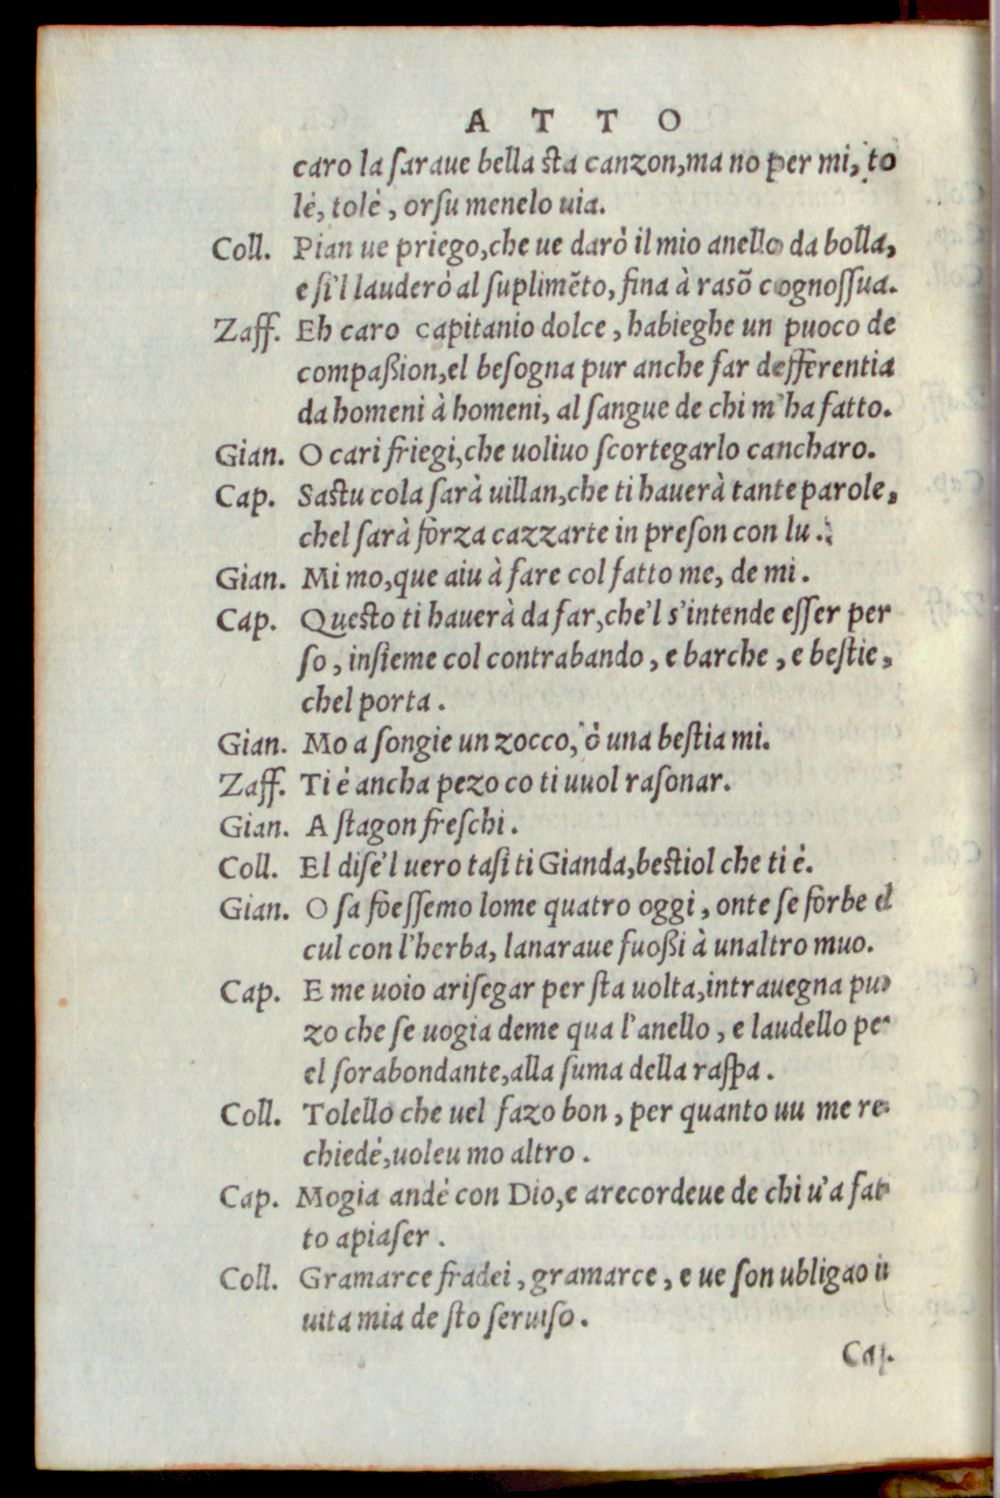 A T T O
caro la ſaraue bella ſta canzon,ma no per mi, to
lé, tolé, orſu menelo uia.
Coll. Pian ue priego,che ue darò il mio anello da bolla,
e ſi'l lauderò al ſuplimẽto, fina à rasõ cognoſſua.
Zaff. Eh caro capitanio dolce, habieghe un puoco de
compaßion,el beſogna pur anche far defferentia
da homeni à homeni, al ſangue de chi m'ha fatto.
Gian. O cari friegi,che uoliuo ſcortegarlo cancharo.
Cap. Saſtu cola ſarà uillan,che ti hauerà tante parole,
chel ſarà forza cazzarte in preſon con lu.
Gian. Mi mo,que aiu à fare col fatto me, de mi.
Cap. Queſto ti hauerà da far,che'l s'intende eſſer per
ſo, inſieme col contrabando, e barche, e beſtie,
chel porta.
Gian. Mo a ſongie un zocco, ò una beſtia mi.
Zaff. Ti é ancha pezo co ti uuol raſonar.
Gian. A ſtagon freſchi.
Coll. El diſe'l uero taſi ti Gianda,beſtiol che ti é.
Gian. O ſa foeſſemo lome quatro oggi, onte ſe forbe el
cul con l'herba, lanaraue fuoßi à unaltro muo.
Cap. E me uoio ariſegar per ſta uolta,intrauegna pu
zo che ſe uogia deme qua l'anello, e laudello per
el ſorabondante,alla ſuma della raſpa.
Coll. Tolello che uel fazo bon, per quanto uu me re
chiedé,uoleu mo altro.
Cap. Mogia andé con Dio,e arecordeue de chi u'a fat
to apiaſer.
Coll. Gramarce fradei, gramarce, e ue ſon ubligao in
uita mia de ſto ſeruiſo.
Cap.